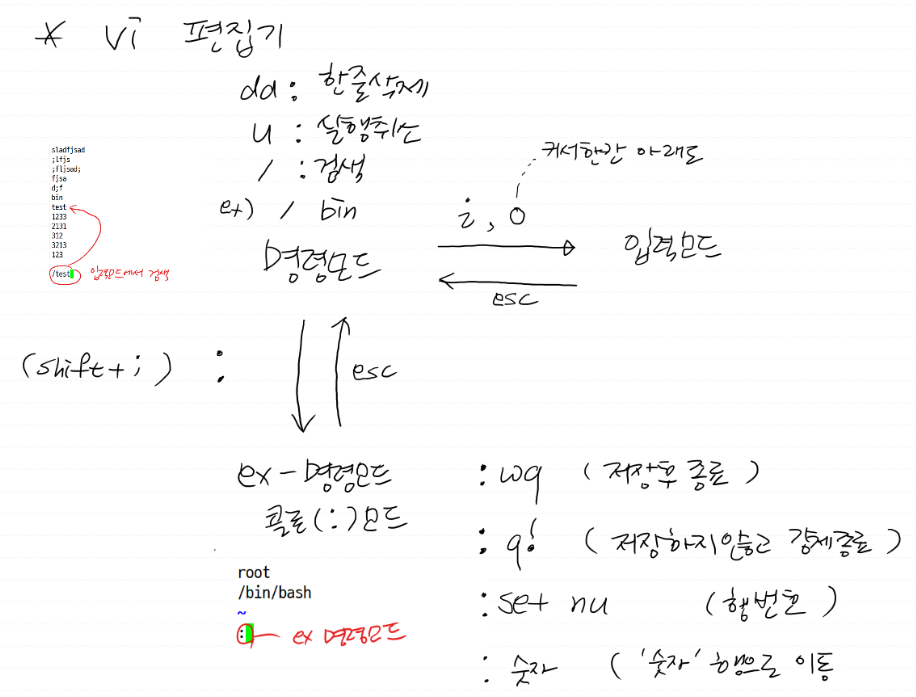 * vi 편집기
dd : 한줄삭제
u : 실행취소
/ : 검색
ex) / bin
커서한칸 아래로
i , o
명령모드
입력모드
esc
sladfjsad
;lfjs
;fljsad;
fjsa
d;f
bin
test
1233
2131
312
3213
123
/test 입력모드에서 검색
(shift+;) :
esc
ex-명령모드
콜론(:)모드
:wq (저장후 종료)
:q! (저장하지않고 강제종료)
:set nu (행번호)
:숫자 ('숫자'행으로 이동
root
/bin/bash
~
: ex 명령모드